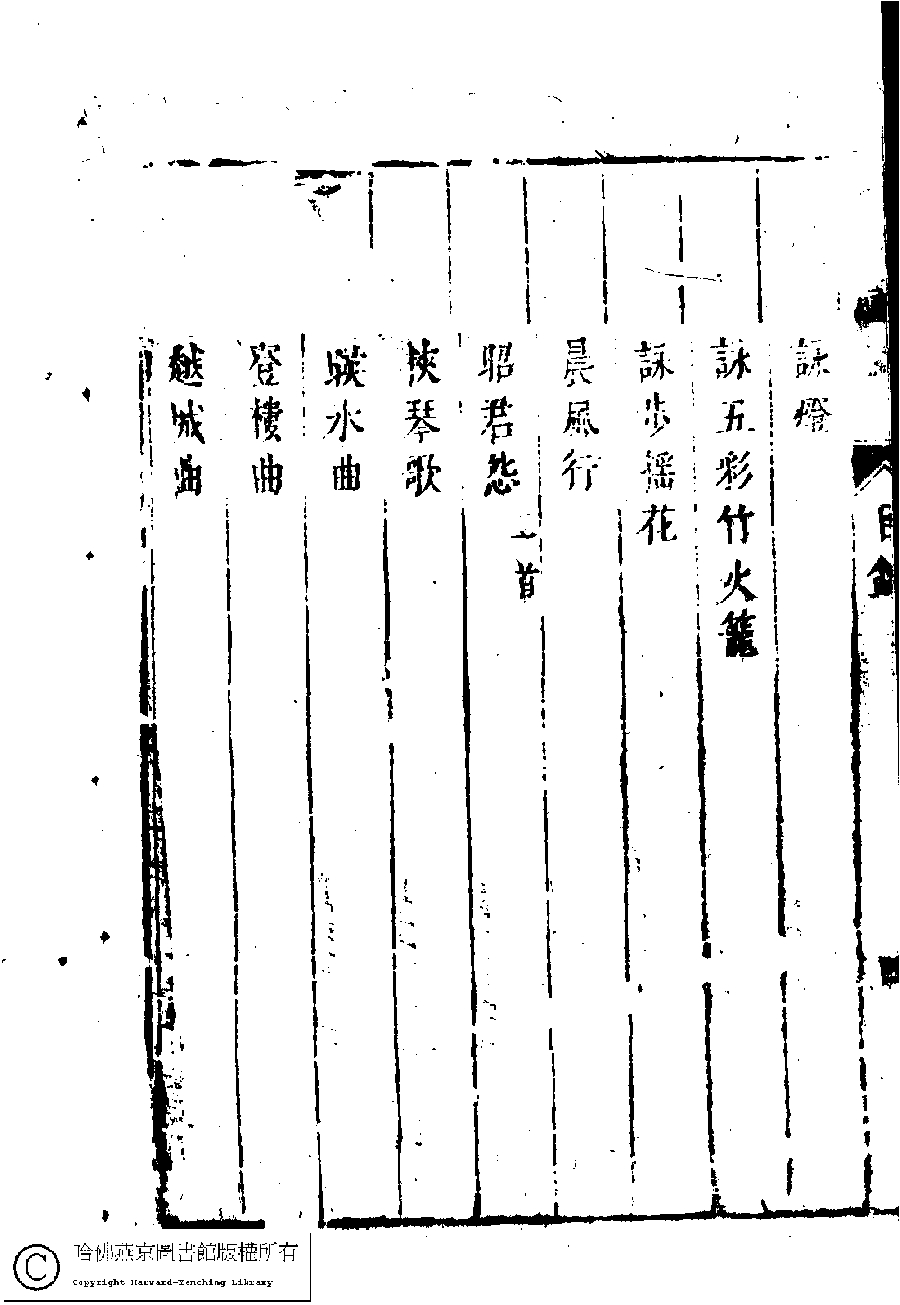 詠燈
詠五彩竹火籠
詠步搖花
晨風行
昭君怨 一首
挾琴歌
映水曲
登樓曲
越城曲
目錄
哈佛燕京圖書館版權所有
Copyright Harvard-Yenching Library